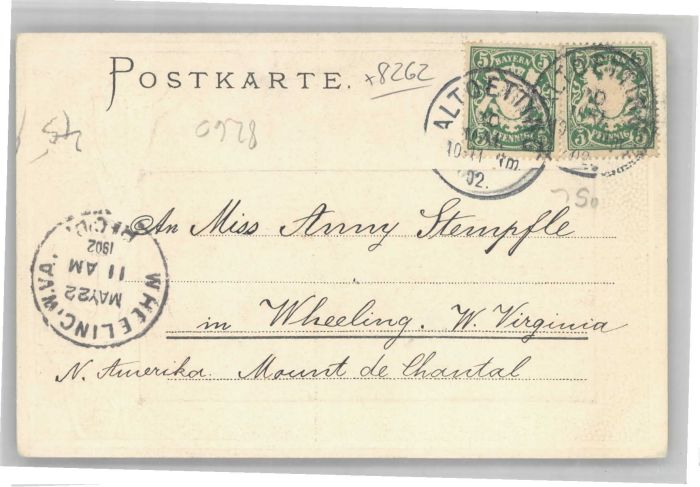 POSTKARTE.
+8262
5 BAYERN 5
5 PFENNIG 5
5 5
5 PFENNIG 5
ALTOETTING
10-11 Vm.
02.
An Miss Anny Stempfle
in Wheeling. W. Virginia
N. Amerika. Mount de Chantal
WHEELING, W.VA.
MAY 22
11 AM
1902
REC'D.